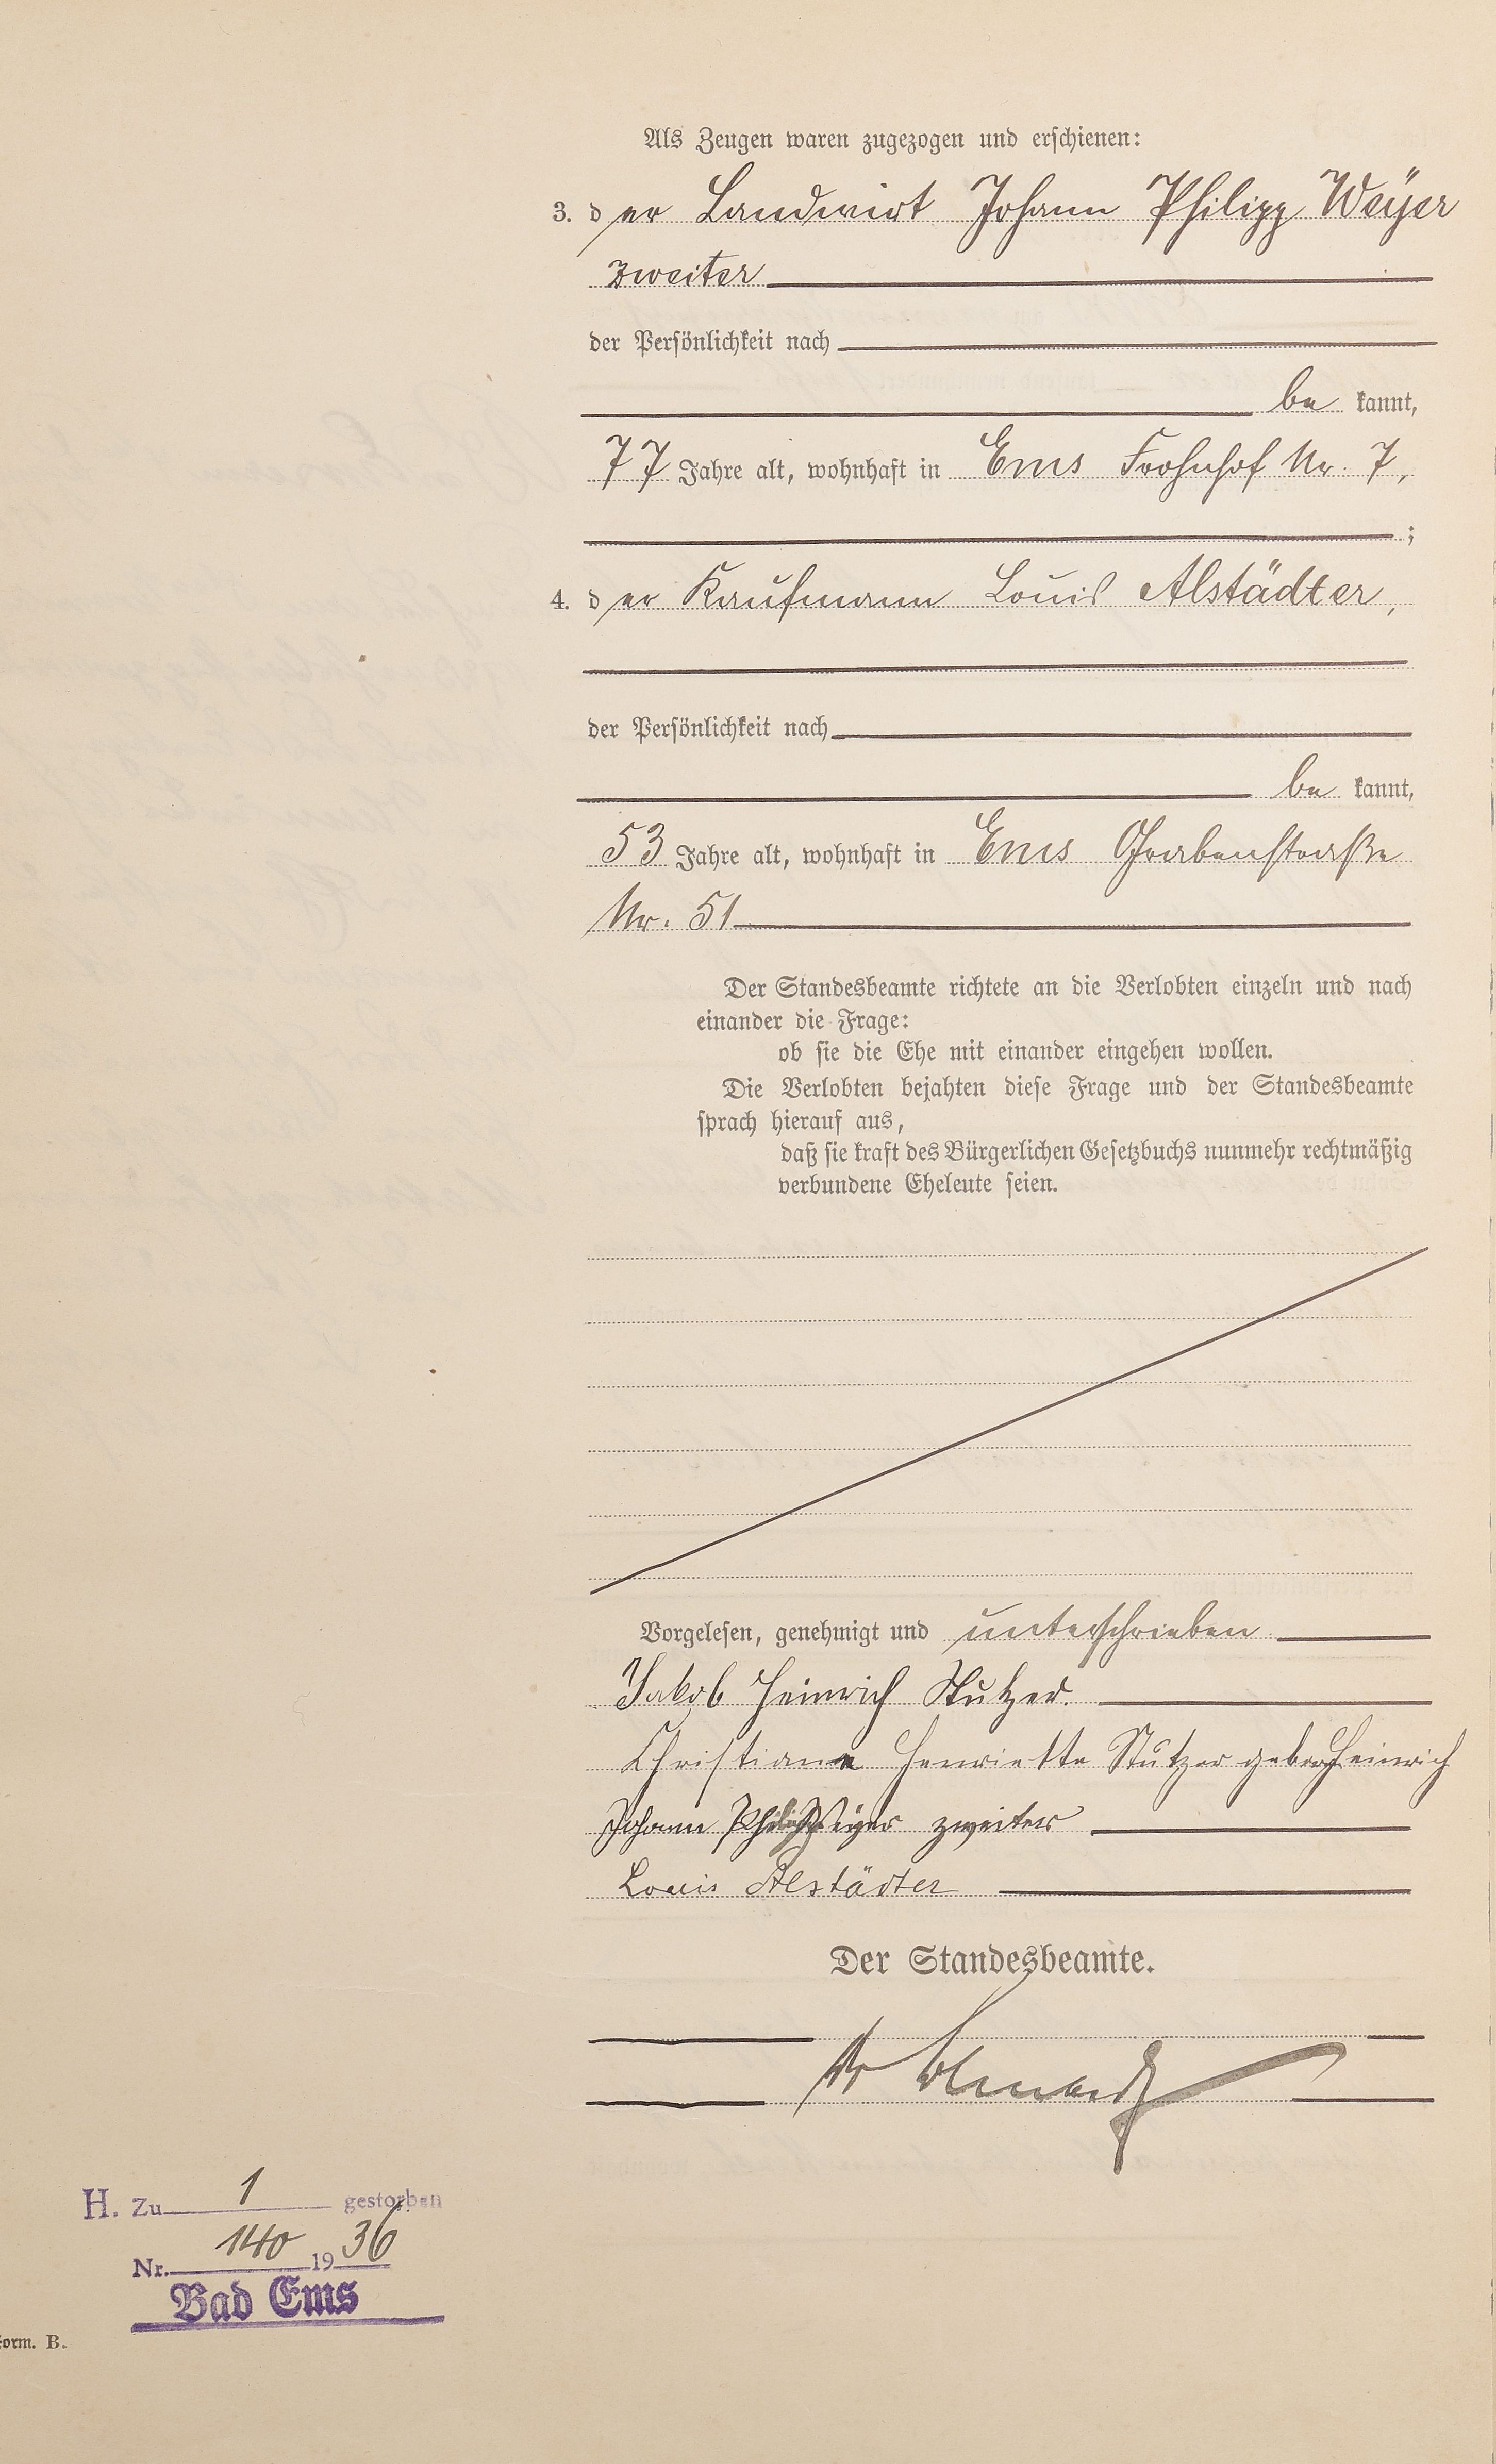 Als Zeugen waren zugezogen und erschienen:
3. der Landwirt Johann Philipp Weyer
zweiter
der Persönlichkeit nach
be kannt,
77 Jahre alt, wohnhaft in Ems Frohnhof Nr. 7,
;
4. der Kaufmann Louis Alstädter,
der Persönlichkeit nach
be kannt,
53 Jahre alt, wohnhaft in Ems Grabenstraße
Nr. 51
Der Standesbeamte richtete an die Verlobten einzeln und nach
einander die Frage:
ob sie die Ehe mit einander eingehen wollen.
Die Verlobten bejahten diese Frage und der Standesbeamte
sprach hierauf aus,
daß sie kraft des Bürgerlichen Gesetzbuchs nunmehr rechtmäßig
verbundene Eheleute seien.
Vorgelesen, genehmigt und unterschrieben
Jakob Heinrich Stutzer.
Christiane Henriette Stutzer geborn Heinrich
Johann Philipp Weyer zweiter
Louis Alstädter
Der Standesbeamte.
H. Zu 1 gestorben
Nr. 140 1936
Bad Ems
Form. B.